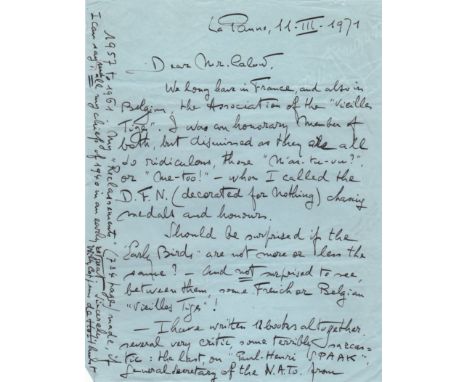 La Panne, 11-III-1971
Dear Mr. Calow.
We long have in France, and also in
Belgium, the Association of the "Vieilles
Tiges". I was an honorary member of
both, but dismissed as they are all
so ridiculous, those "M'as-tu-vu?".
or "Me-too!" - whom I called the
D.F.N. (decorated for Nothing) chasing
medals and honours.
Should be surprised if the
Early Birds are not more or less the
same? - And not surprised to see,
between them, some French or Belgian
"Vieilles Tiges"!
- I have written 12 books altogether.
several very critic, some terribly sarcas-
tic: the last on "Paul-Henri SPAAK",
general secretary of the N.A.T.O. from
1957 to 1961. My "Reclassements" (734 pages) made, if
I can say, all my chiefs of 1940 in an early
sincerely